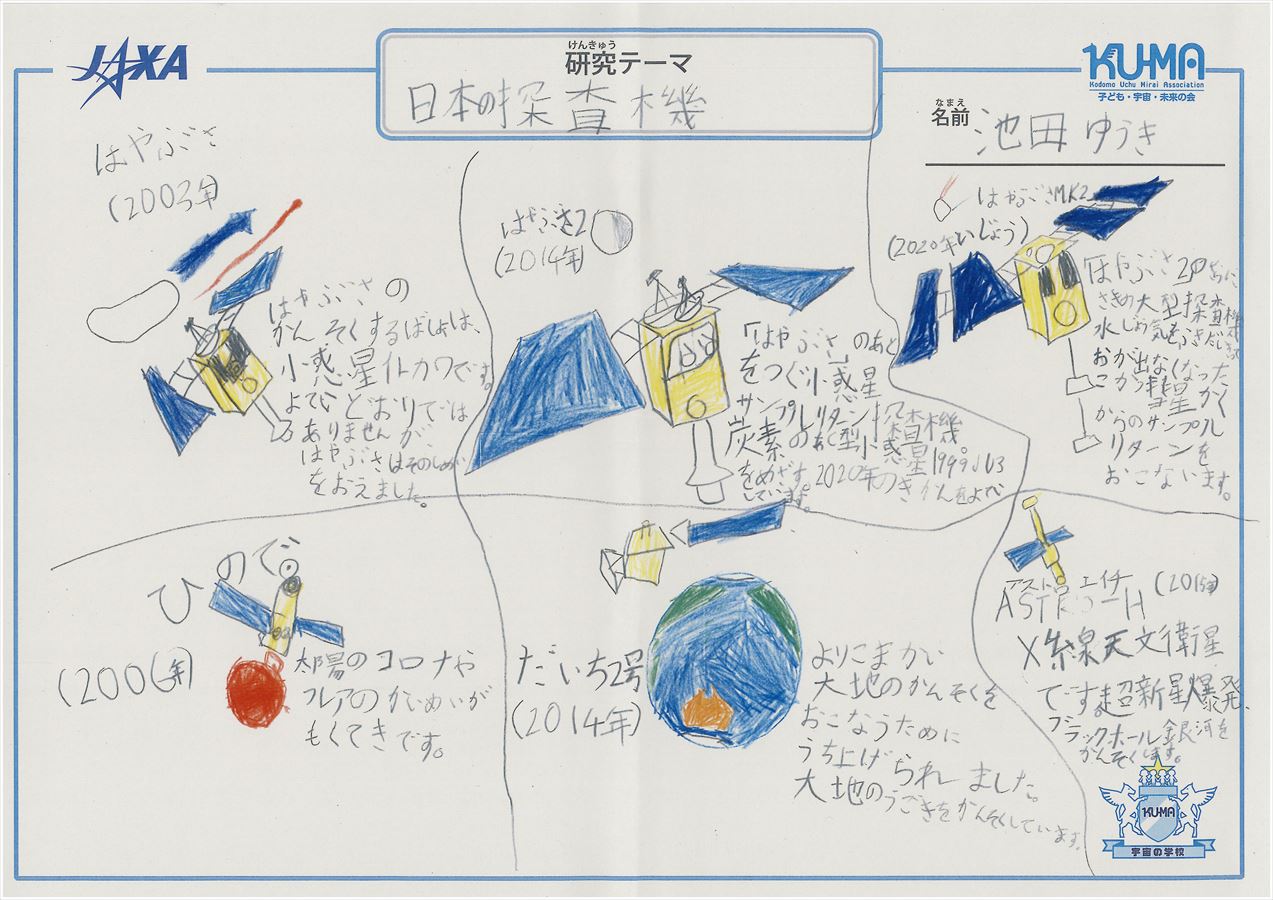 JAXA
けんきゅう
研究テーマ
日本の探査機
KU-MA
Kodomo Uchu Mirai Association
子ども・宇宙・未来の会
なまえ
名前
池田ゆうき
はやぶさ
(2003年)
はやぶさの
かんそくするばしょは、
小惑星イトカワです。
よていどおりでは
ありませんが、
はやぶさはそのしめい
をおえました。
はやぶさ2
(2014年)
「はやぶさ」のあと
をつぐ小惑星
サンプルリターン探査機。
炭素の多く型小惑星1999JU3
をめざす。2020年のきかんをよてい
しています。
はやぶさMK2
(2020年いじょう)
「はやぶさ2」の
さきの大型探査機
水じょう気をふきだし
おが出なくなった
こかつ彗星かく
からのサンプル
リターンを
おこないます。
ひので
(2006年)
太陽のコロナや
フレアのかいめいが
もくてきです。
だいち2号
(2014年)
よりこまかい
大地のかんそくを
おこなうために
うち上げられました。
大地のうごきをかんそくしています。
アストロエイチ
ASTRO-H
(2015年)
X線天文衛星
です。超新星爆発、
ブラックホール銀河を
かんそくします。
KU-MA
宇宙の学校